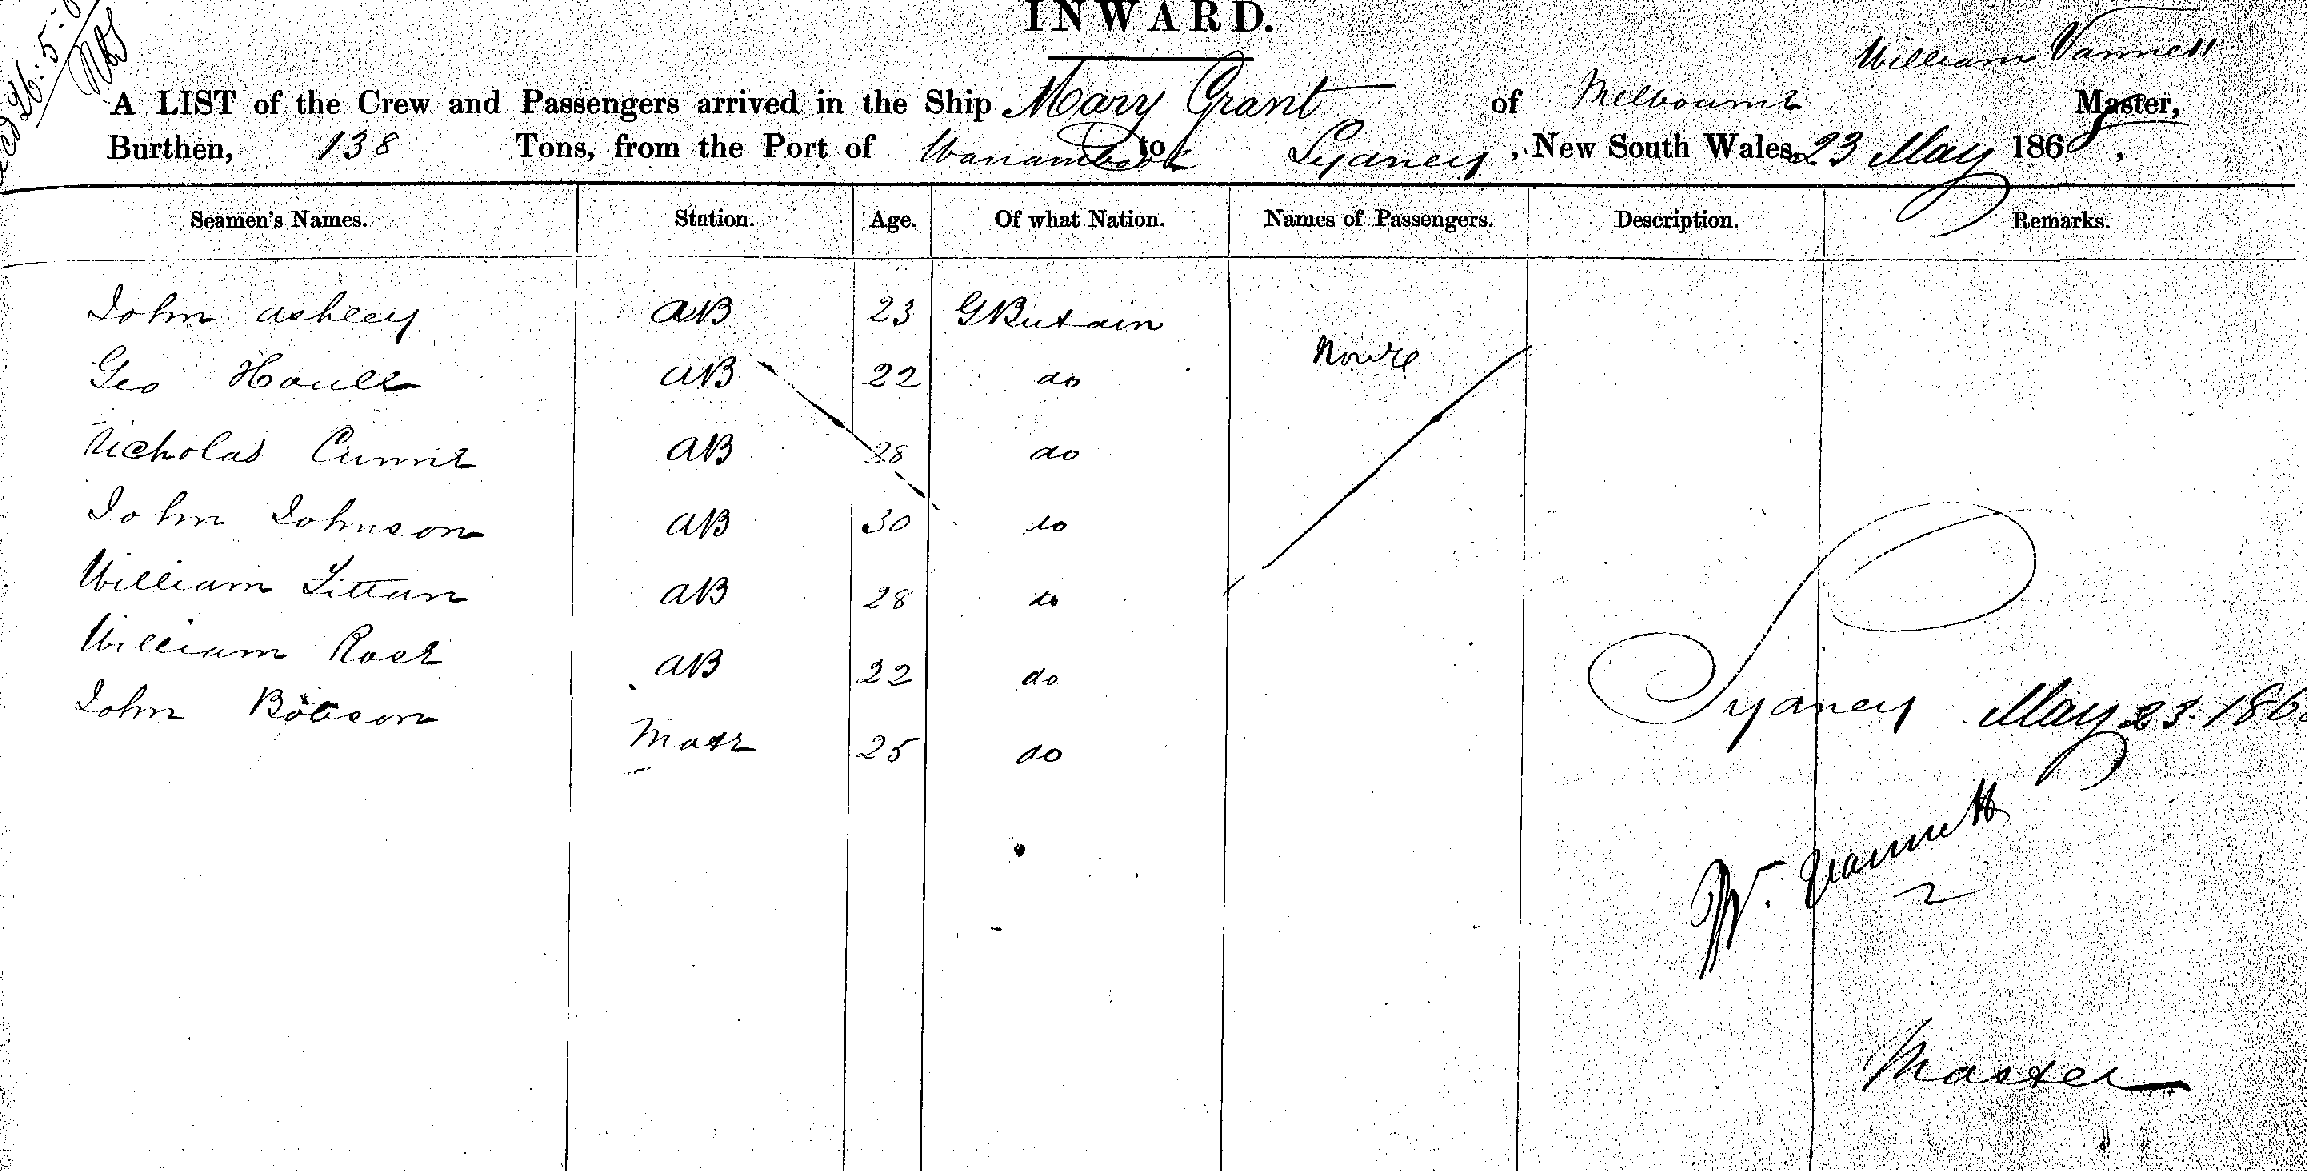 INWARD.
William Vannett
A LIST of the Crew and Passengers arrived in the Ship Mary Grant of Melbourne Master,
Burthen, 138 Tons, from the Port of to Sydney, New South Wales, 23 May 186
Seamen's Names. Station. Age. Of what Nation. Names of Passengers. Description. Remarks.
John Ashley AB 23 G Britain
None
Geo AB 22 do
Nicholas AB 28 do
John Johnson AB 30 do
William AB 28 do
William AB 22 do
John Mate 25 do
Sydney May 23. 186
W. Vannett
Master